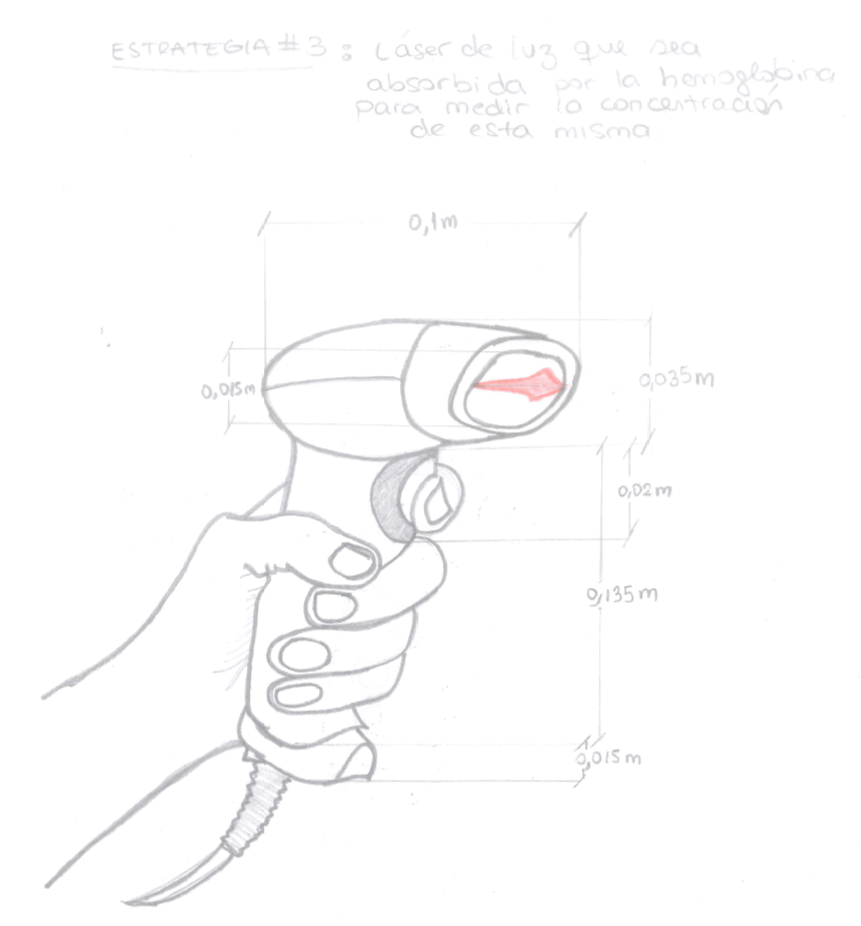 ESTRATEGIA # 3 : Láser de luz que sea
absorbida por la hemoglobina
para medir la concentración
de esta misma
0,1m
0,015m
0,035m
0,02m
0,135m
0,015m